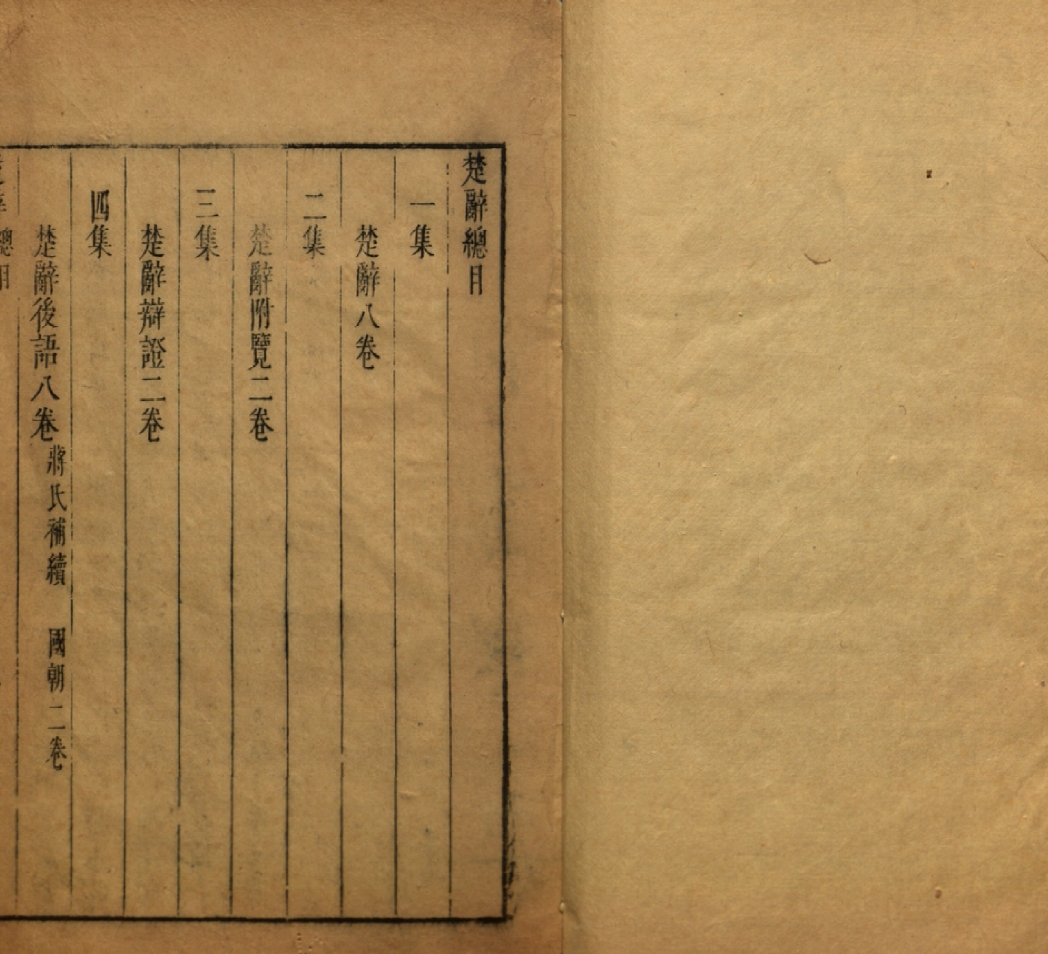 楚辭總目
一集
楚辭八卷
二集
楚辭附覽二卷
三集
楚辭辯證二卷
四集
楚辭後語八卷 蔣氏補續 國朝二卷